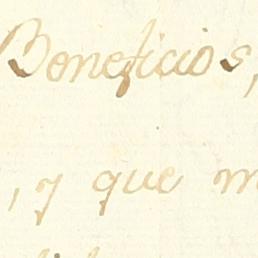 Beneficios,
, y que